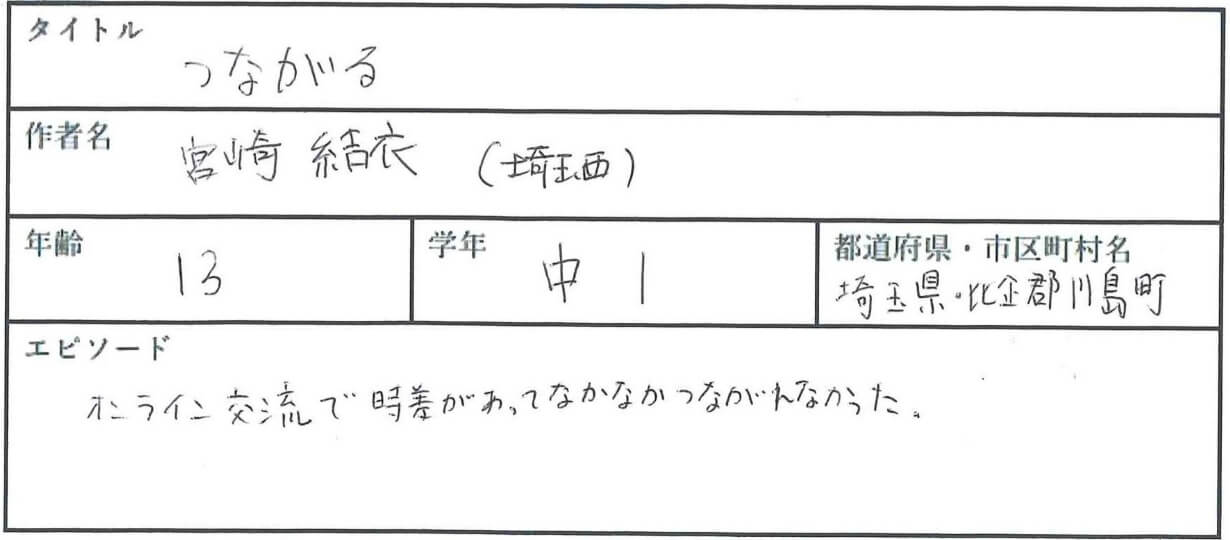 タイトル
つながる
作者名
宮崎 結衣 (埼玉西)
年齢
13
学年
中 1
都道府県・市区町村名
埼玉県・比企郡川島町
エピソード
オンライン交流で時差があってなかなかつながれなかった。